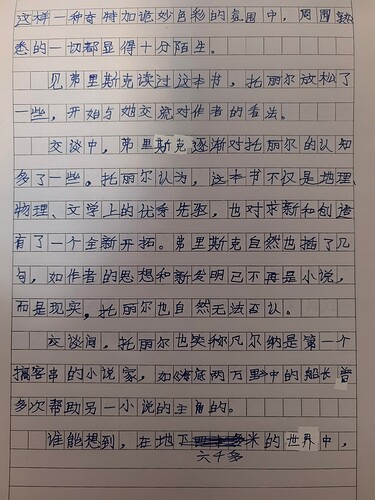 这样一种奇特加诡妙色彩的氛围中，周围熟
悉的一切都显得十分陌生。
见弗里斯克读过这本书，托丽尔放松了
一些，开始与她交流对作者的看法。
交谈中，弗里斯克逐渐对托丽尔的认知
多了一些。托丽尔认为，这本书不仅是地理、
物理、文学上的优秀先驱，也对求新和创造
有了一个全新开拓。弗里斯克自然也插了几
句，如作者的思想和新发明已不再是小说，
而是现实，托丽尔也自然无法否认。
交谈间，托丽尔也笑称凡尔纳是第一个
搞客串的小说家，如《海底两万里》中的船长曾
多次帮助另一小说的主角的。
谁能想到，在地下六千多米的世界中，